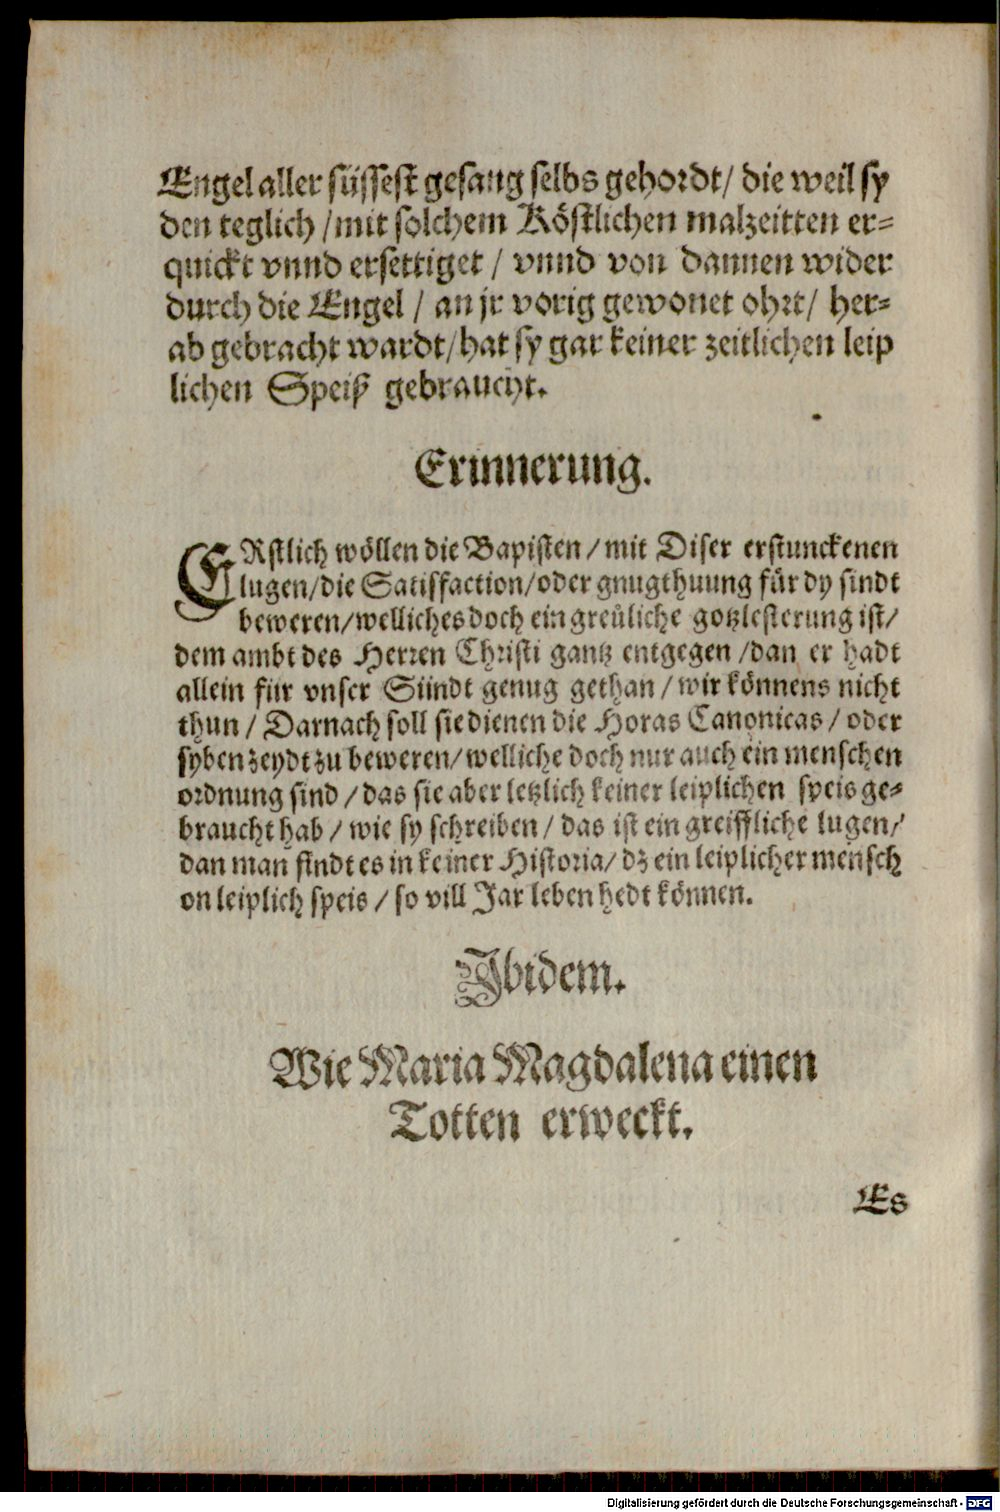 Engel aller süssest gesang selbs gehordt / die weil sy
den teglich / mit solchem Köstlichen malzeitten er=
quickt vnnd ersettiget / vnnd von dannen wider
durch die Engel / an jr vorig gewonet ohrt / her=
ab gebracht wardt / hat sy gar keiner zeitlichen leip
lichen Speiß gebraucht.
Erinnerung.
ERstlich wöllen die Bapisten / mit Diser erstunckenen
lugen / die Satisfaction / oder gnugthuung für dy sindt
beweren / welliches doch ein greüliche gotzlesterung ist /
dem ambt des Herren Christi gantz entgegen / dan er hadt
allein für vnser Sündt genug gethan / wir können s nicht
thun / Darnach soll sie dienen die Horas Canonicas / oder
syben zeydt zu beweren / welliche doch nur auch ein menschen
ordnung sind / das sie aber letzlich keiner leiplichen speis ge=
braucht hab / wie sy schreiben / das ist ein greiffliche lugen /
dan man findt es in keiner Historia / dz ein leiplicher mensch
on leiplich speis / so vill Jar leben hedt können.
Ibidem.
Wie Maria Magdalena einen
Totten erweckt.
Es
Digitalisierung gefördert durch die Deutsche Forschungsgemeinschaft - DFG